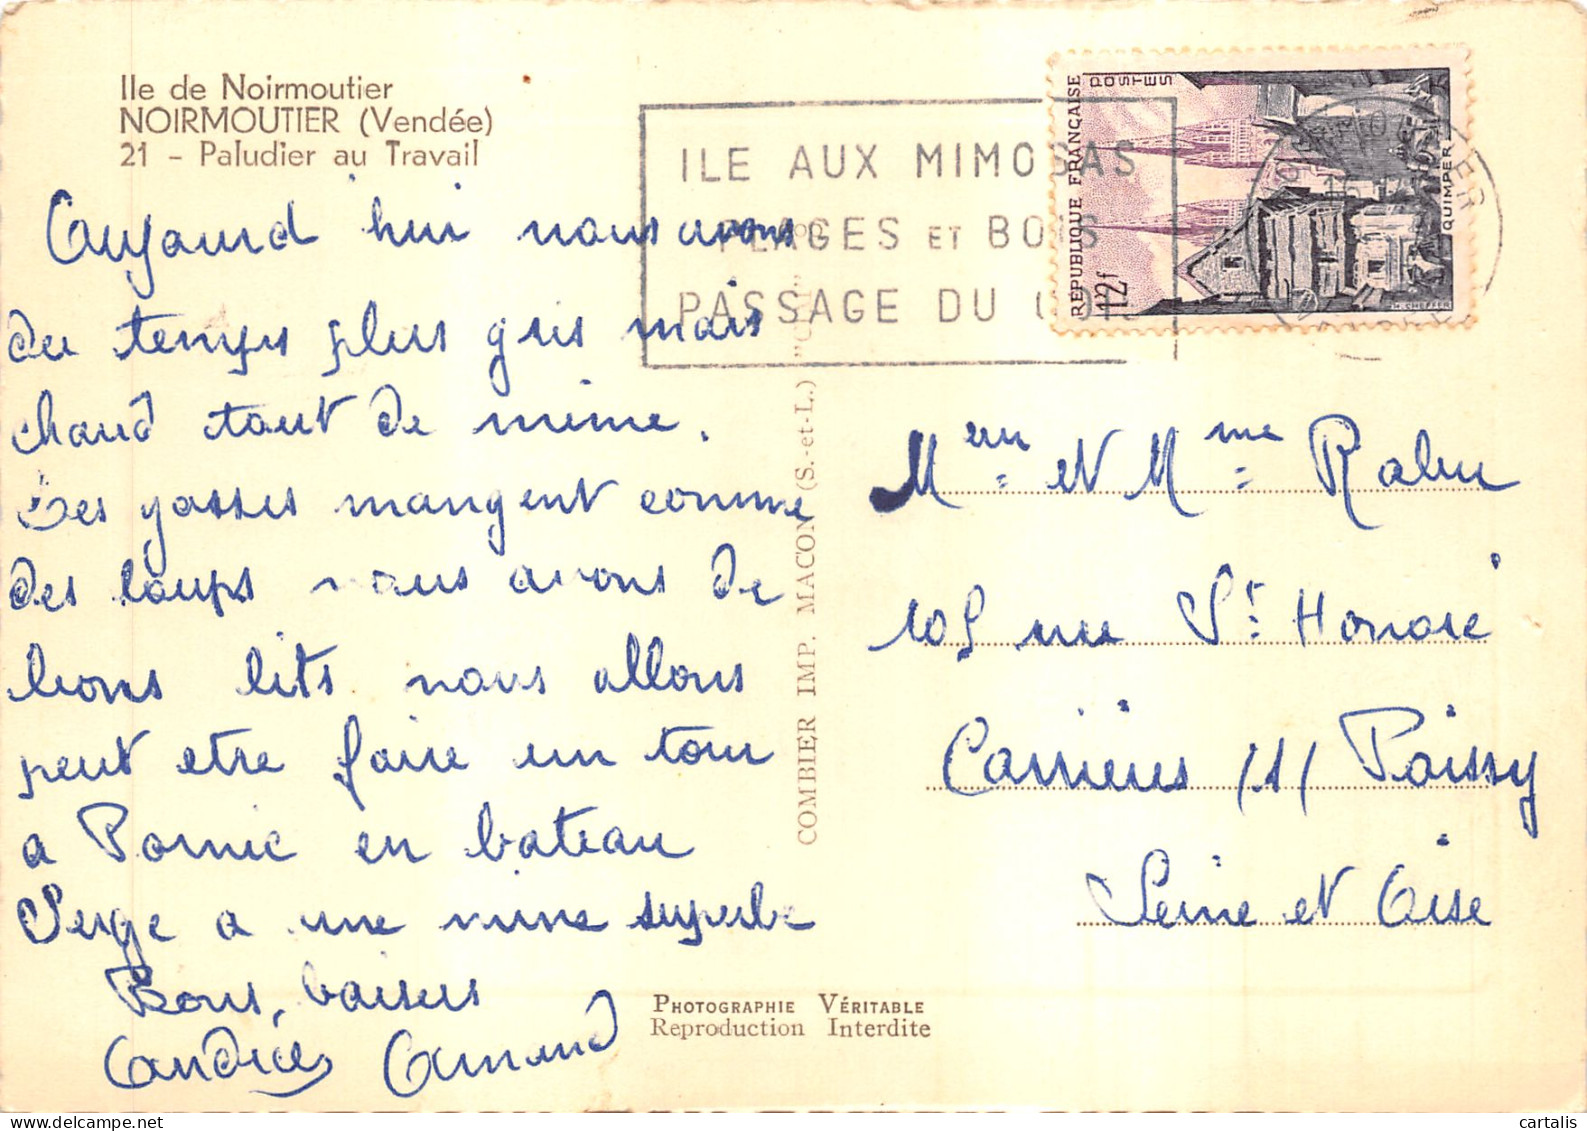 Ile de Noirmoutier
NOIRMOUTIER (Vendée)
21 - Paludier au Travail
Aujourd'hui nous avons
du temps plus gris mais
chaud tout de même.
Les gosses mangent comme
des loups nous avons de
bons lits nous allons
peut etre faire un tour
a Pornic en bateau
Serge a une mine superbe
Bons baisers
Armand
ILE AUX MIMOSAS
PLAGES ET BOIS
PASSAGE DU GOIS
RÉPUBLIQUE FRANÇAISE
POSTES
12f
QUIMPER
H. CHEFFER
COMBIER IMP. MACON (S.-et-L.) "CIM"
et Mme Rabu
105 rue St Honoré
Carrières /s/ Poissy
Seine et Oise
PHOTOGRAPHIE VÉRITABLE
Reproduction Interdite
cartalis
delcampe.net